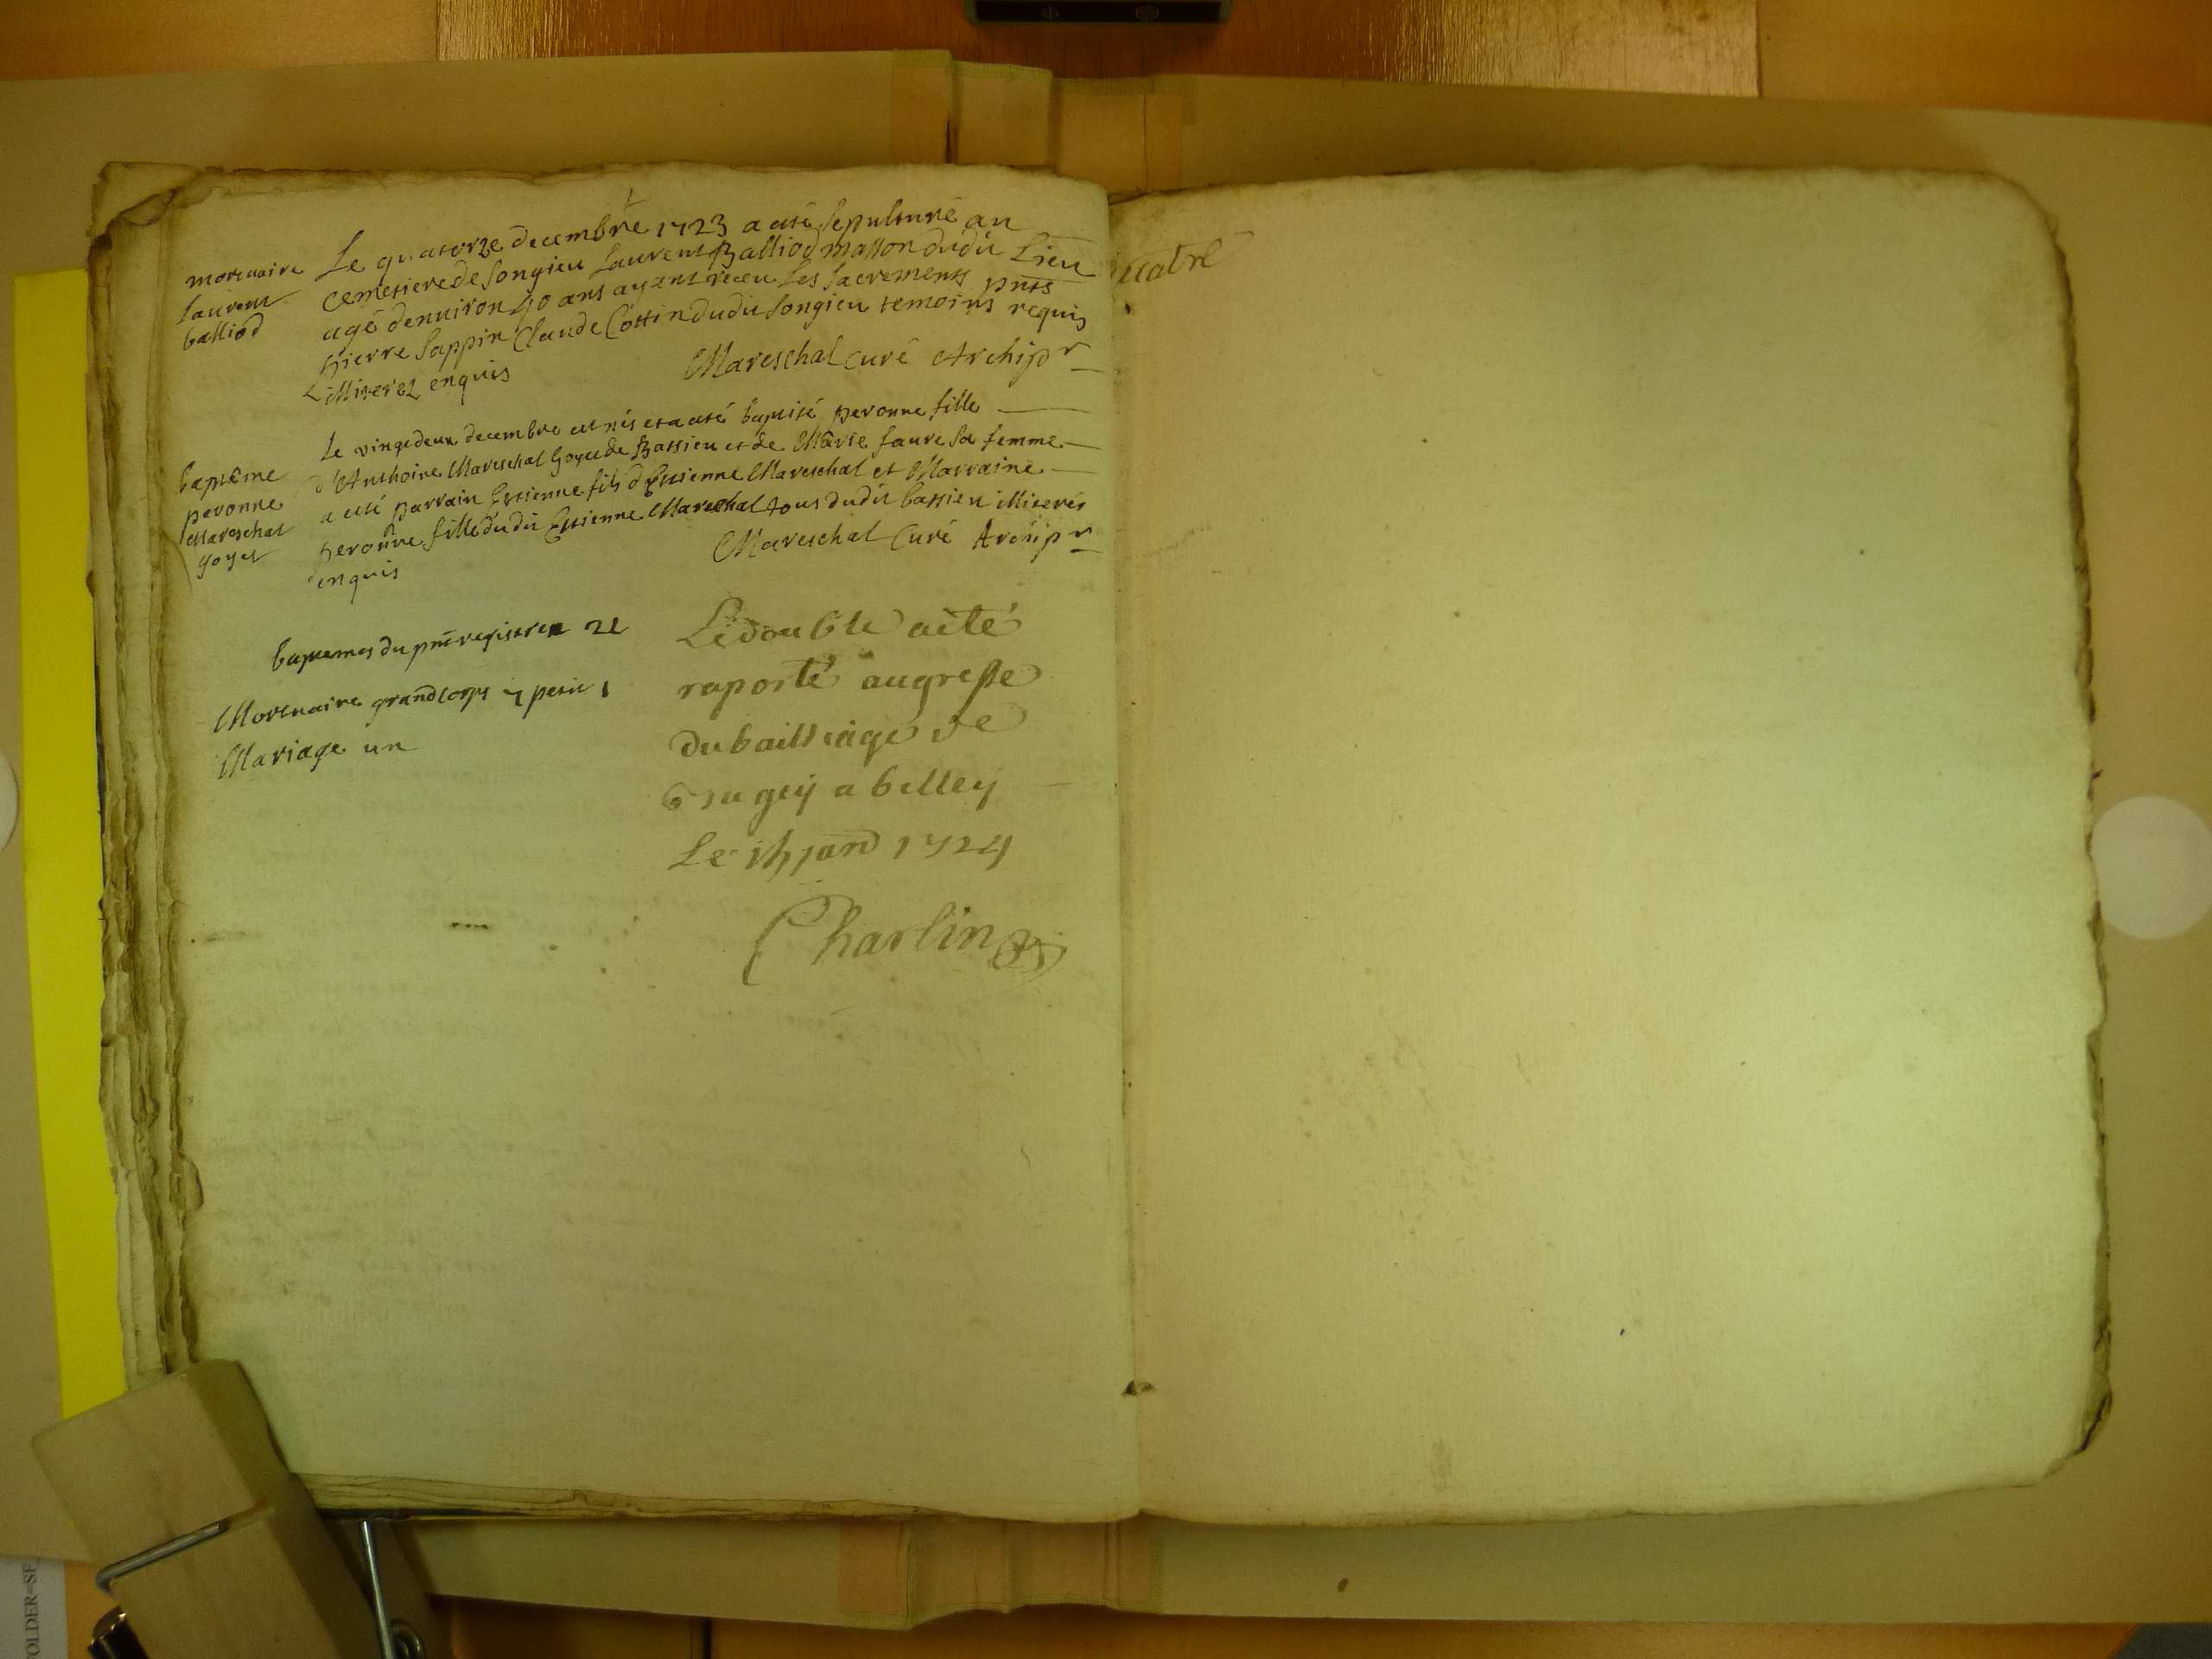 mortuaire
laurent
balliod
Le quatorze decembre 1723 a eté sepulturé au
cemetiere de songieu laurent Balliod masson dudit Lieu
agé denviron 40 ans ayant receu les sacrements pnts
pierre sappin Claude Cottin dudit songieu temoins requis
illiterez enquis
Mareschal curé Archipr
baptême
peronne
Mareschal
goyet
le vingtdeux decembre est née et a eté baptisé peronne fille
d'Anthoine Mareschal goyet de Bassieu et de Marie faure sa femme
a eté parrain Estienne fils d'Estienne Mareschal et Marraine
peronne fille dudit Estienne Mareschal tous dudit bassieu illiterés
enquis
Mareschal Curé Archipr
baptemes du pnt registre 21
Mortuaire grand corps 7 petit 1
Mariage un
Le double aeté
raporté augreffe
du bailliage de
Bugey a belley
Le janv 1724
Charlin
uatre
OLDER-SE